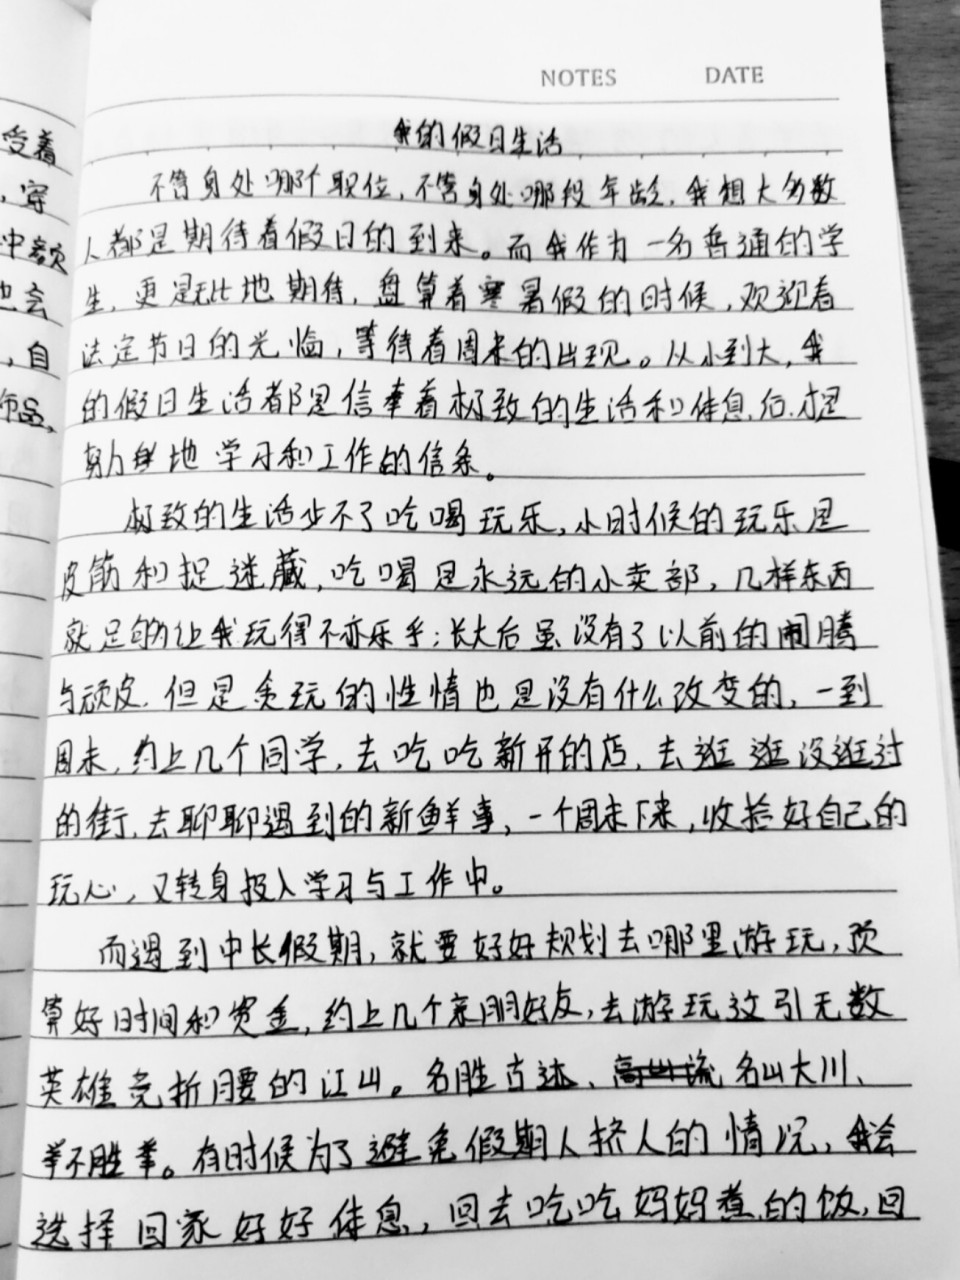 NOTES DATE
我的假日生活
不管身处哪个职位,不管身处哪段年龄,我想大多数
人都是期待着假日的到来。而我作为一名普通的学
生,更是无比地期待,盘算着寒暑假的时候,欢迎着
法定节日的光临,等待着周末的出现。从小到大,我
的假日生活都是信奉着极致的生活和休息,后,才是
努力地学习和工作的信条。
极致的生活少不了吃喝玩乐,小时候的玩乐是
皮筋和捉迷藏,吃喝是永远的小卖部,几样东西
就足够让我玩得不亦乐乎;长大后虽没有了以前的闹腾
与顽皮,但是贪玩的性情也是没有什么改变的,一到
周末,约上几个同学,去吃吃新开的店,去逛逛没逛过
的街,去聊聊遇到的新鲜事,一个周末下来,收拾好自己的
玩心,又转身投入学习与工作中。
而遇到中长假期,就要好好规划去哪里游玩,预
算好时间和资金,约上几个亲朋好友,去游玩这引无数
英雄竞折腰的江山。名胜古迹、名山大川、
举不胜举。有时候为了避免假期人挤人的情况,我会
选择回家好好休息,回去吃吃妈妈煮的饭,回
受着
,穿
也会
,自
作品,